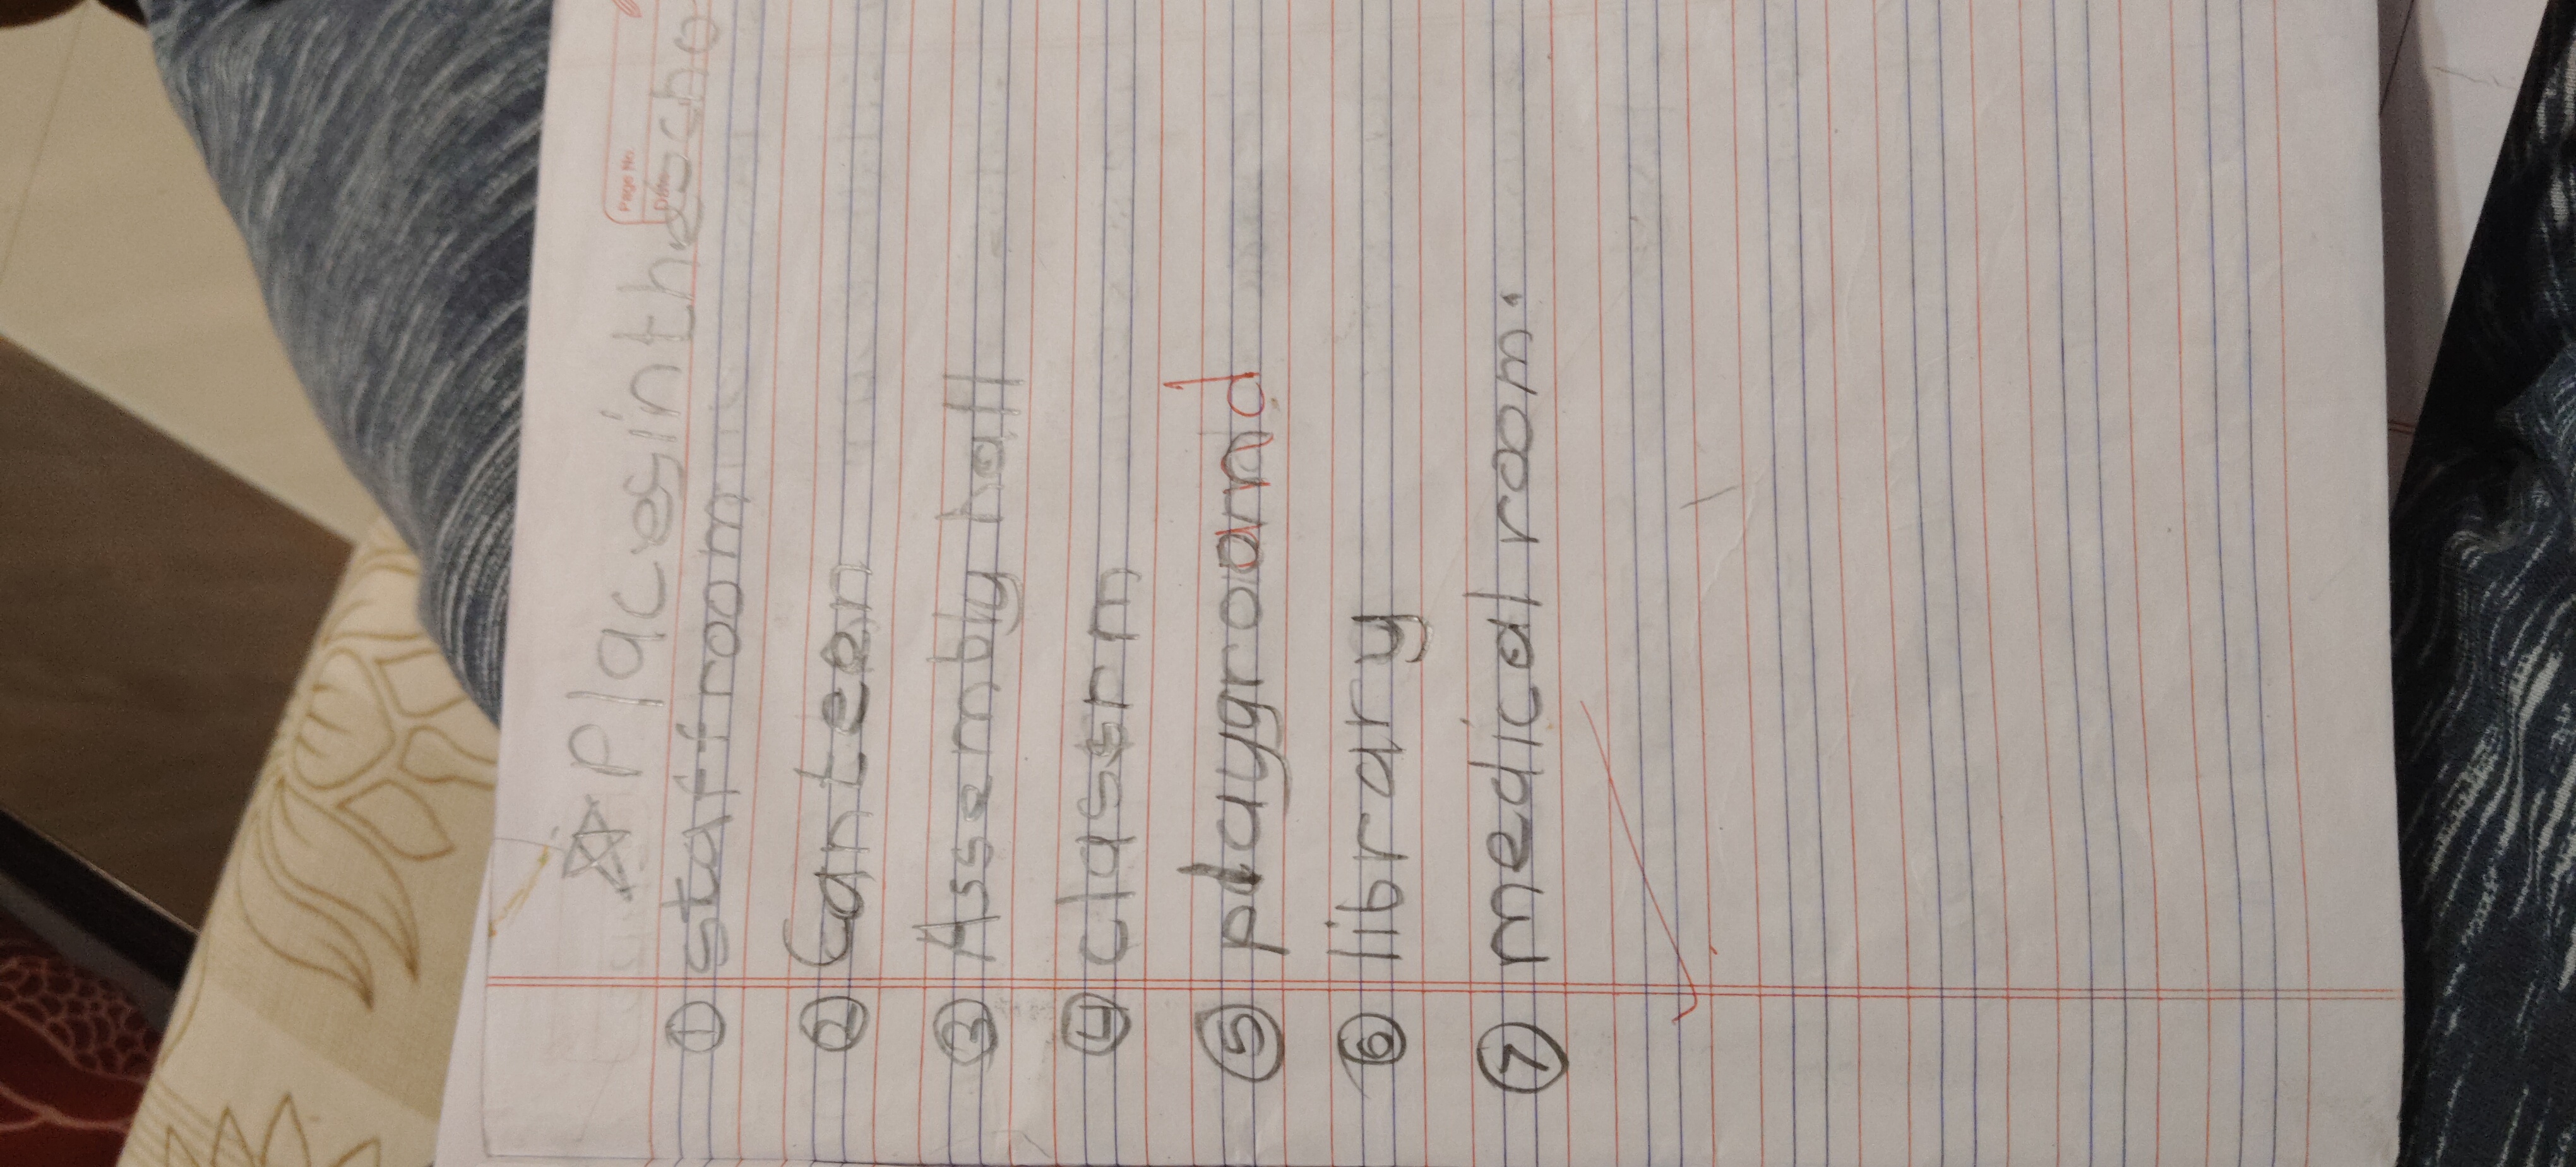 Page No.
Date
☆ Places in the scho
① staff room
② Canteen
③ Assembly hall
④ classrm
⑤ playground
⑥ library
⑦ medical room.